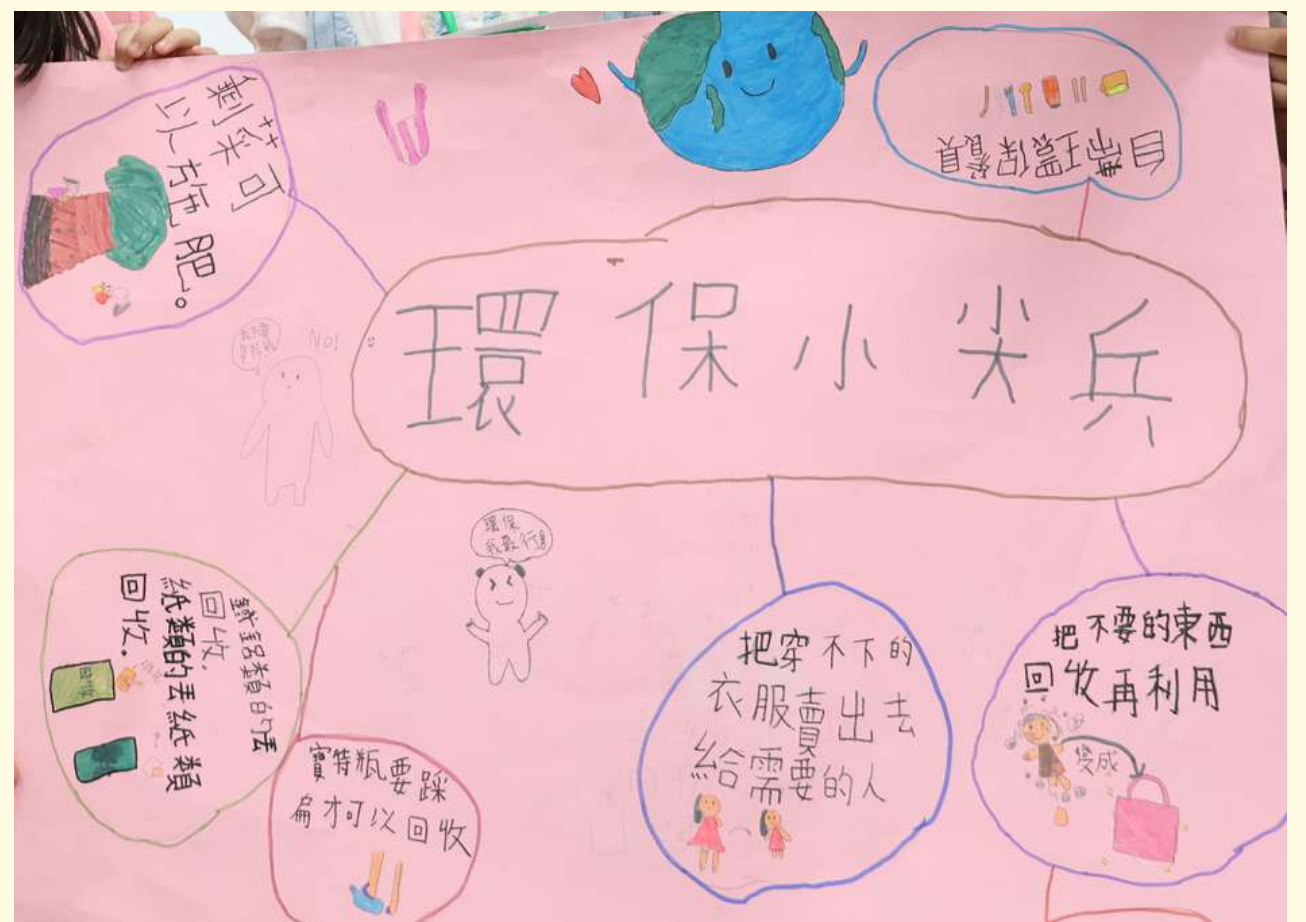 剩菜可
以施肥。
自帶環保餐具
環保小尖兵
NO!
環保
我最行
鐵鋁類的丟
回收.
紙類的丟紙類
回收.
回收
寶特瓶要踩
扁才可以回收
把穿不下的
衣服賣出去
給需要的人
把不要的東西
回收再利用
變成